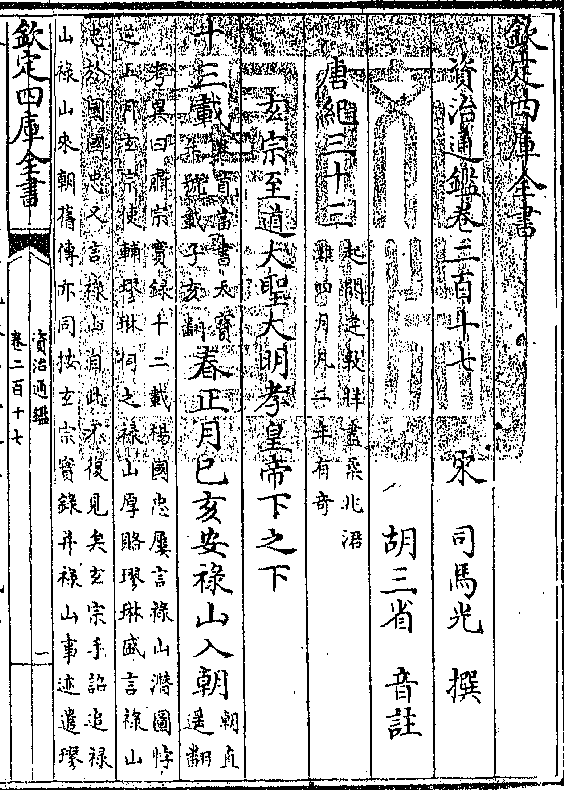 欽定四庫全書
資治通鑑卷二百十七
宋 司馬光 撰
胡三省 音註
唐紀三十三 起閼逢敦牂盡柔兆涒
灘四月凡二年有奇
玄宗至道大聖大明孝皇帝下之下
十三載 唐書天寶
年號載子亥翻 春正月己亥安祿山入朝 朝直
遙翻
考異曰肅宗實錄十二載楊國忠屢言祿山潛圖悖
逆五月玄宗使輔璆琳伺之祿山厚賂璆琳盛言祿山
忠於國國忠又言祿山自此不復見矣玄宗手詔追祿
山祿山來朝舊傳亦同按玄宗實錄并祿山事迹遣璆
欽定四庫全書
資治通鑑
卷二百十七
一